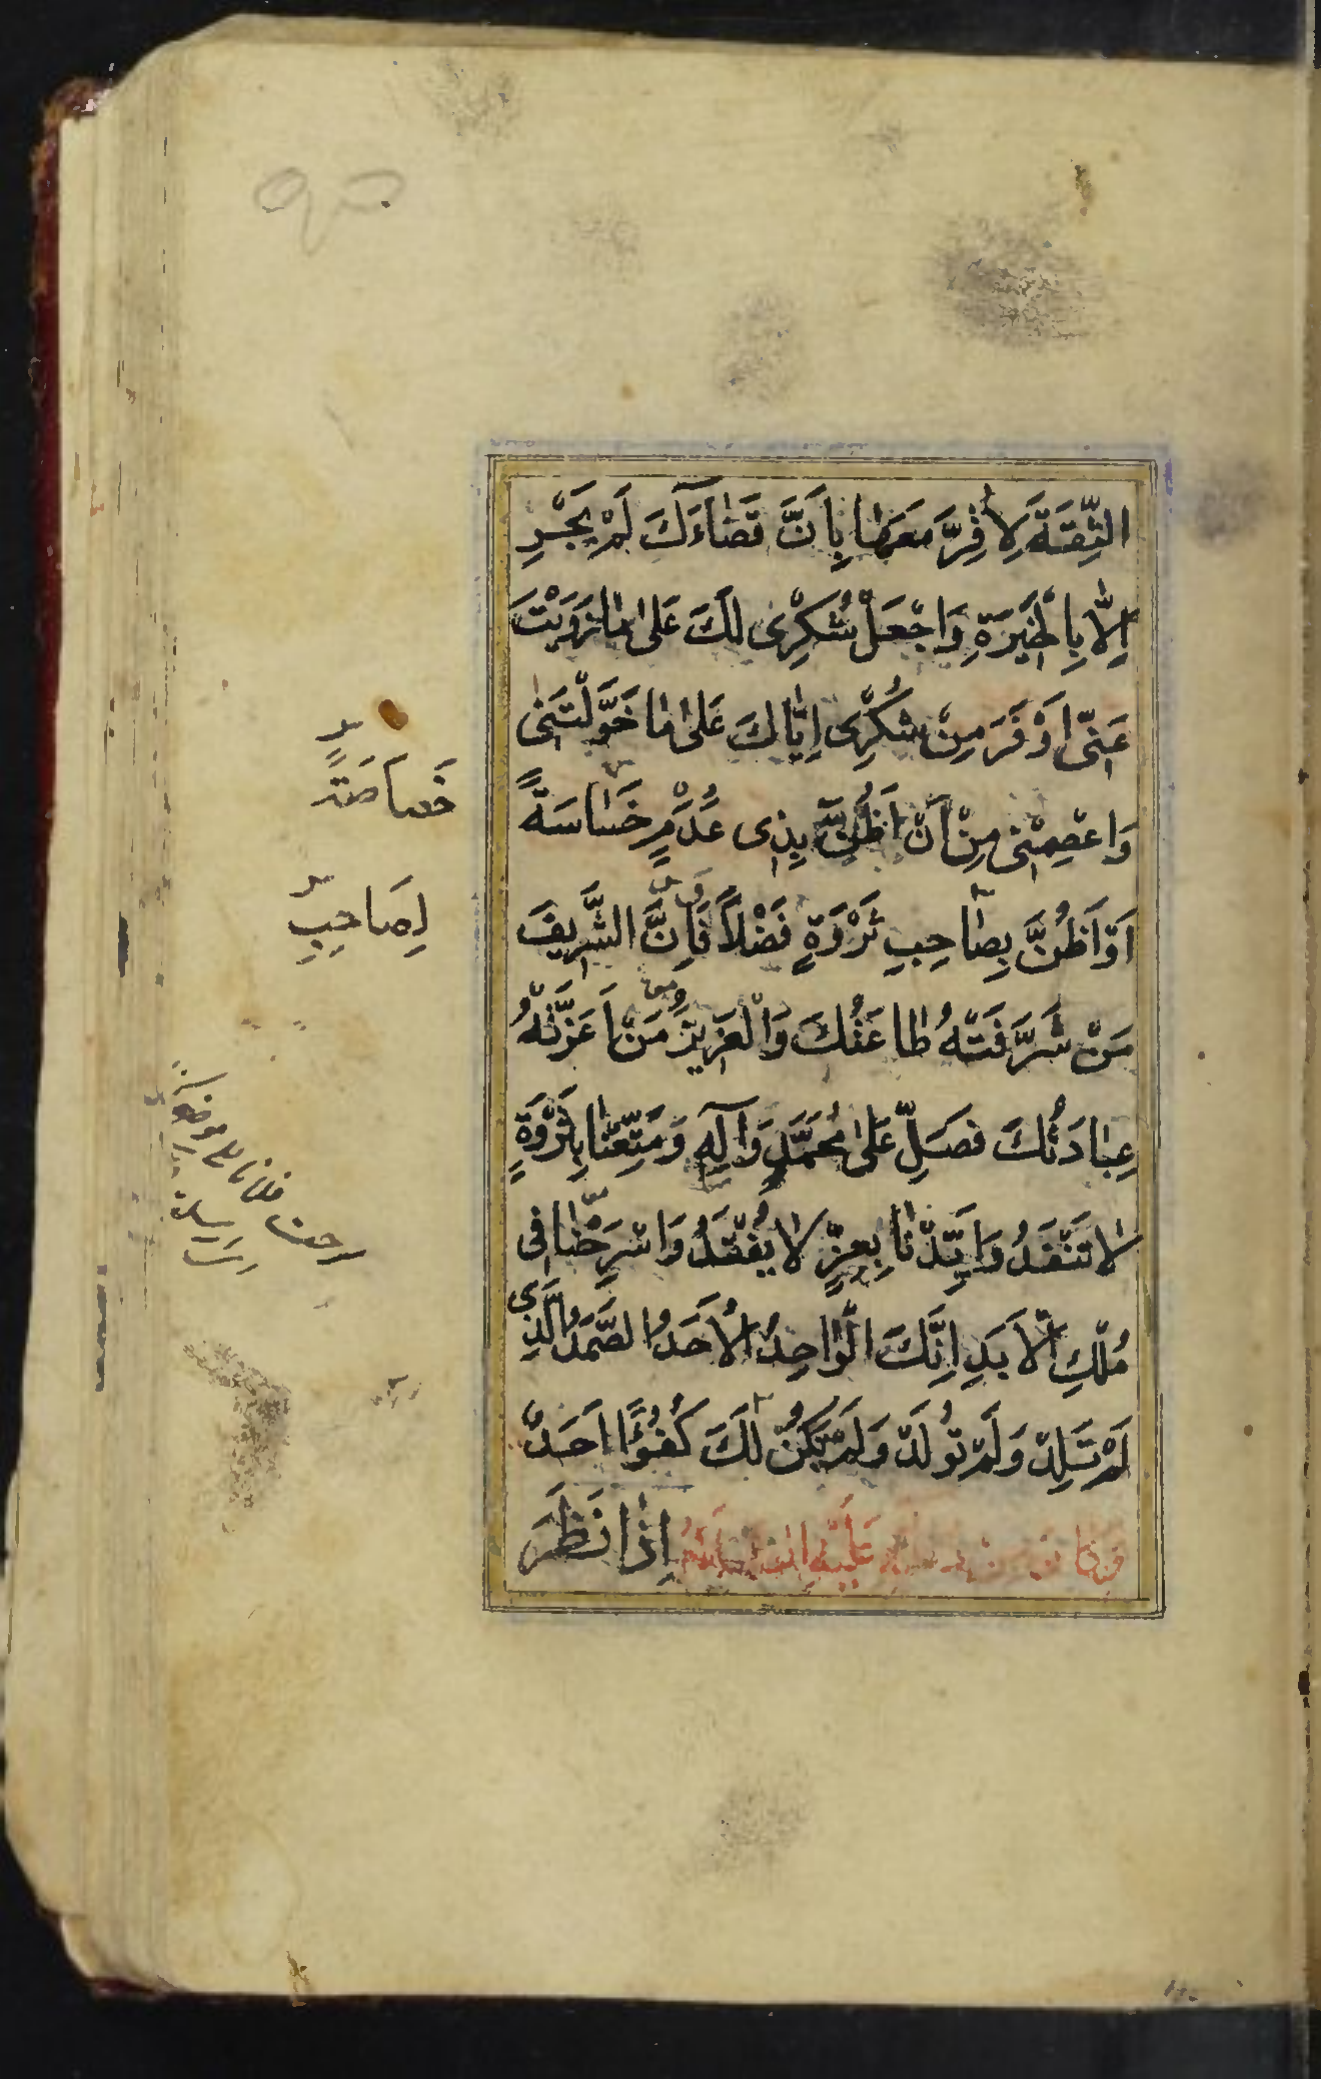 الثِّقَةَ لِأُقِرَّ مَعَهَا بِاَنَّ قَضَاءَكَ لَمْ يَجْرِ
اِلَّا بِالْخِيَرَةِ وَاجْعَلْ شُكْرِى لَكَ عَلٰى مَا زَوَيْتَ
عَنِّى اَوْفَرَ مِنْ شُكْرِى اِيَّاكَ عَلٰى مَا خَوَّلْتَنِى
وَاعْصِمْنِى مِنْ اَنْ اَظُنَّ بِذِى عُدْمٍ خَسَاسَةً
خَصَاصَةً
اَوْ اَظُنَّ بِصَاحِبِ ثَرْوَةٍ فَضْلًا فَاِنَّ الشَّرِيفَ
لِصَاحِبِ
مَنْ شَرَّفَتْهُ طَاعَتُكَ وَالْعَزِيزَ مَنْ اَعَزَّتْهُ
عِبَادَتُكَ فَصَلِّ عَلٰى مُحَمَّدٍ وَآلِهِ وَمَتِّعْنَا بِثَرْوَةٍ
لَا تَنْفَدُ وَاَيِّدْنَا بِعِزٍّ لَا يُفْقَدُ وَاسْرَحْنَا فِى
مُلْكِ الْاَبَدِ اِنَّكَ الْوَاحِدُ الْاَحَدُ الصَّمَدُ الَّذِى
لَمْ تَلِدْ وَلَمْ تُولَدْ وَلَمْ يَكُنْ لَكَ كُفُوًا اَحَدٌ
عَلَيْهِ السَّلَامُ اِذَا نَظَرَ